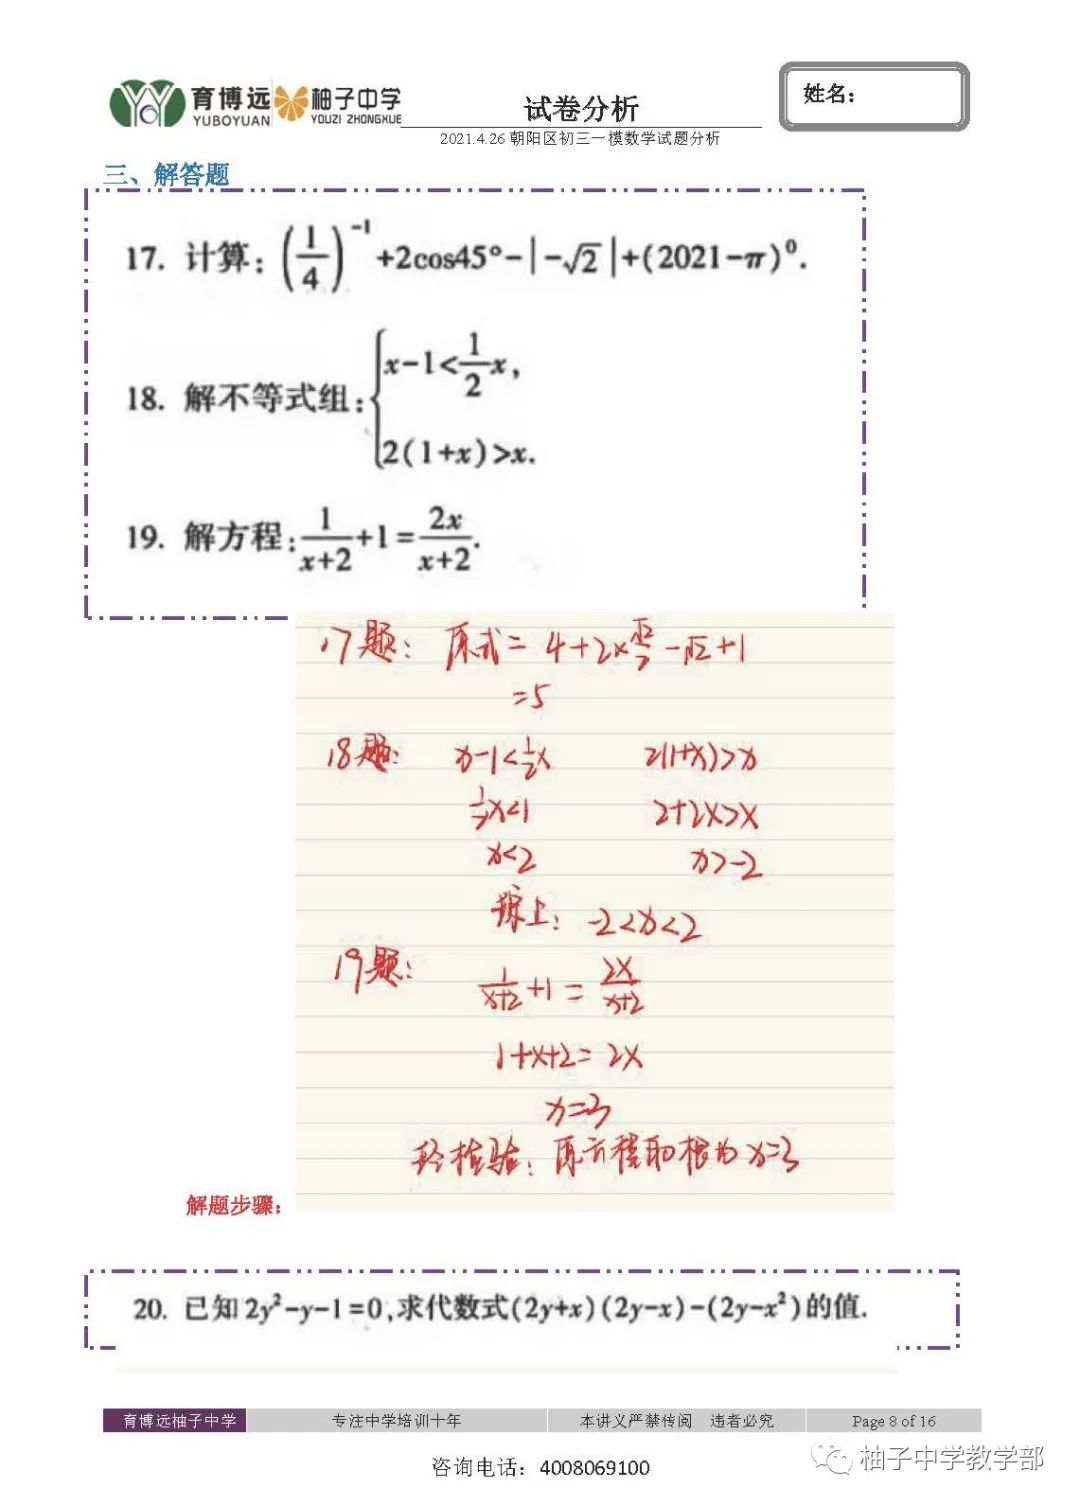 育博远 柚子中学
YUBOYUAN YOUZI ZHONGXUE
试卷分析
姓名：
2021.4.26 朝阳区初三一模数学试题分析
三、解答题
17. 计算：(1/4)^-1+2cos45°-|-√2|+(2021-π)^0.
18. 解不等式组：{x-1<1/2x,
2(1+x)>x.
19. 解方程：1/(x+2)+1=2x/(x+2).
17题：原式= 4+2×√2/2-√2+1
=5
18题： x-1<1/2x 2(1+x)>x
1/2x<1 2+2x>x
x<2 x>-2
综上：-2<x<2
19题： 1/(x+2)+1=2x/(x+2)
1+x+2=2x
x=3
经检验：原方程的根为x=3
解题步骤：
20. 已知2y²-y-1=0,求代数式(2y+x)(2y-x)-(2y-x²)的值.
育博远柚子中学 专注中学培训十年 本讲义严禁传阅 违者必究 Page 8 of 16
咨询电话：4008069100
柚子中学教学部